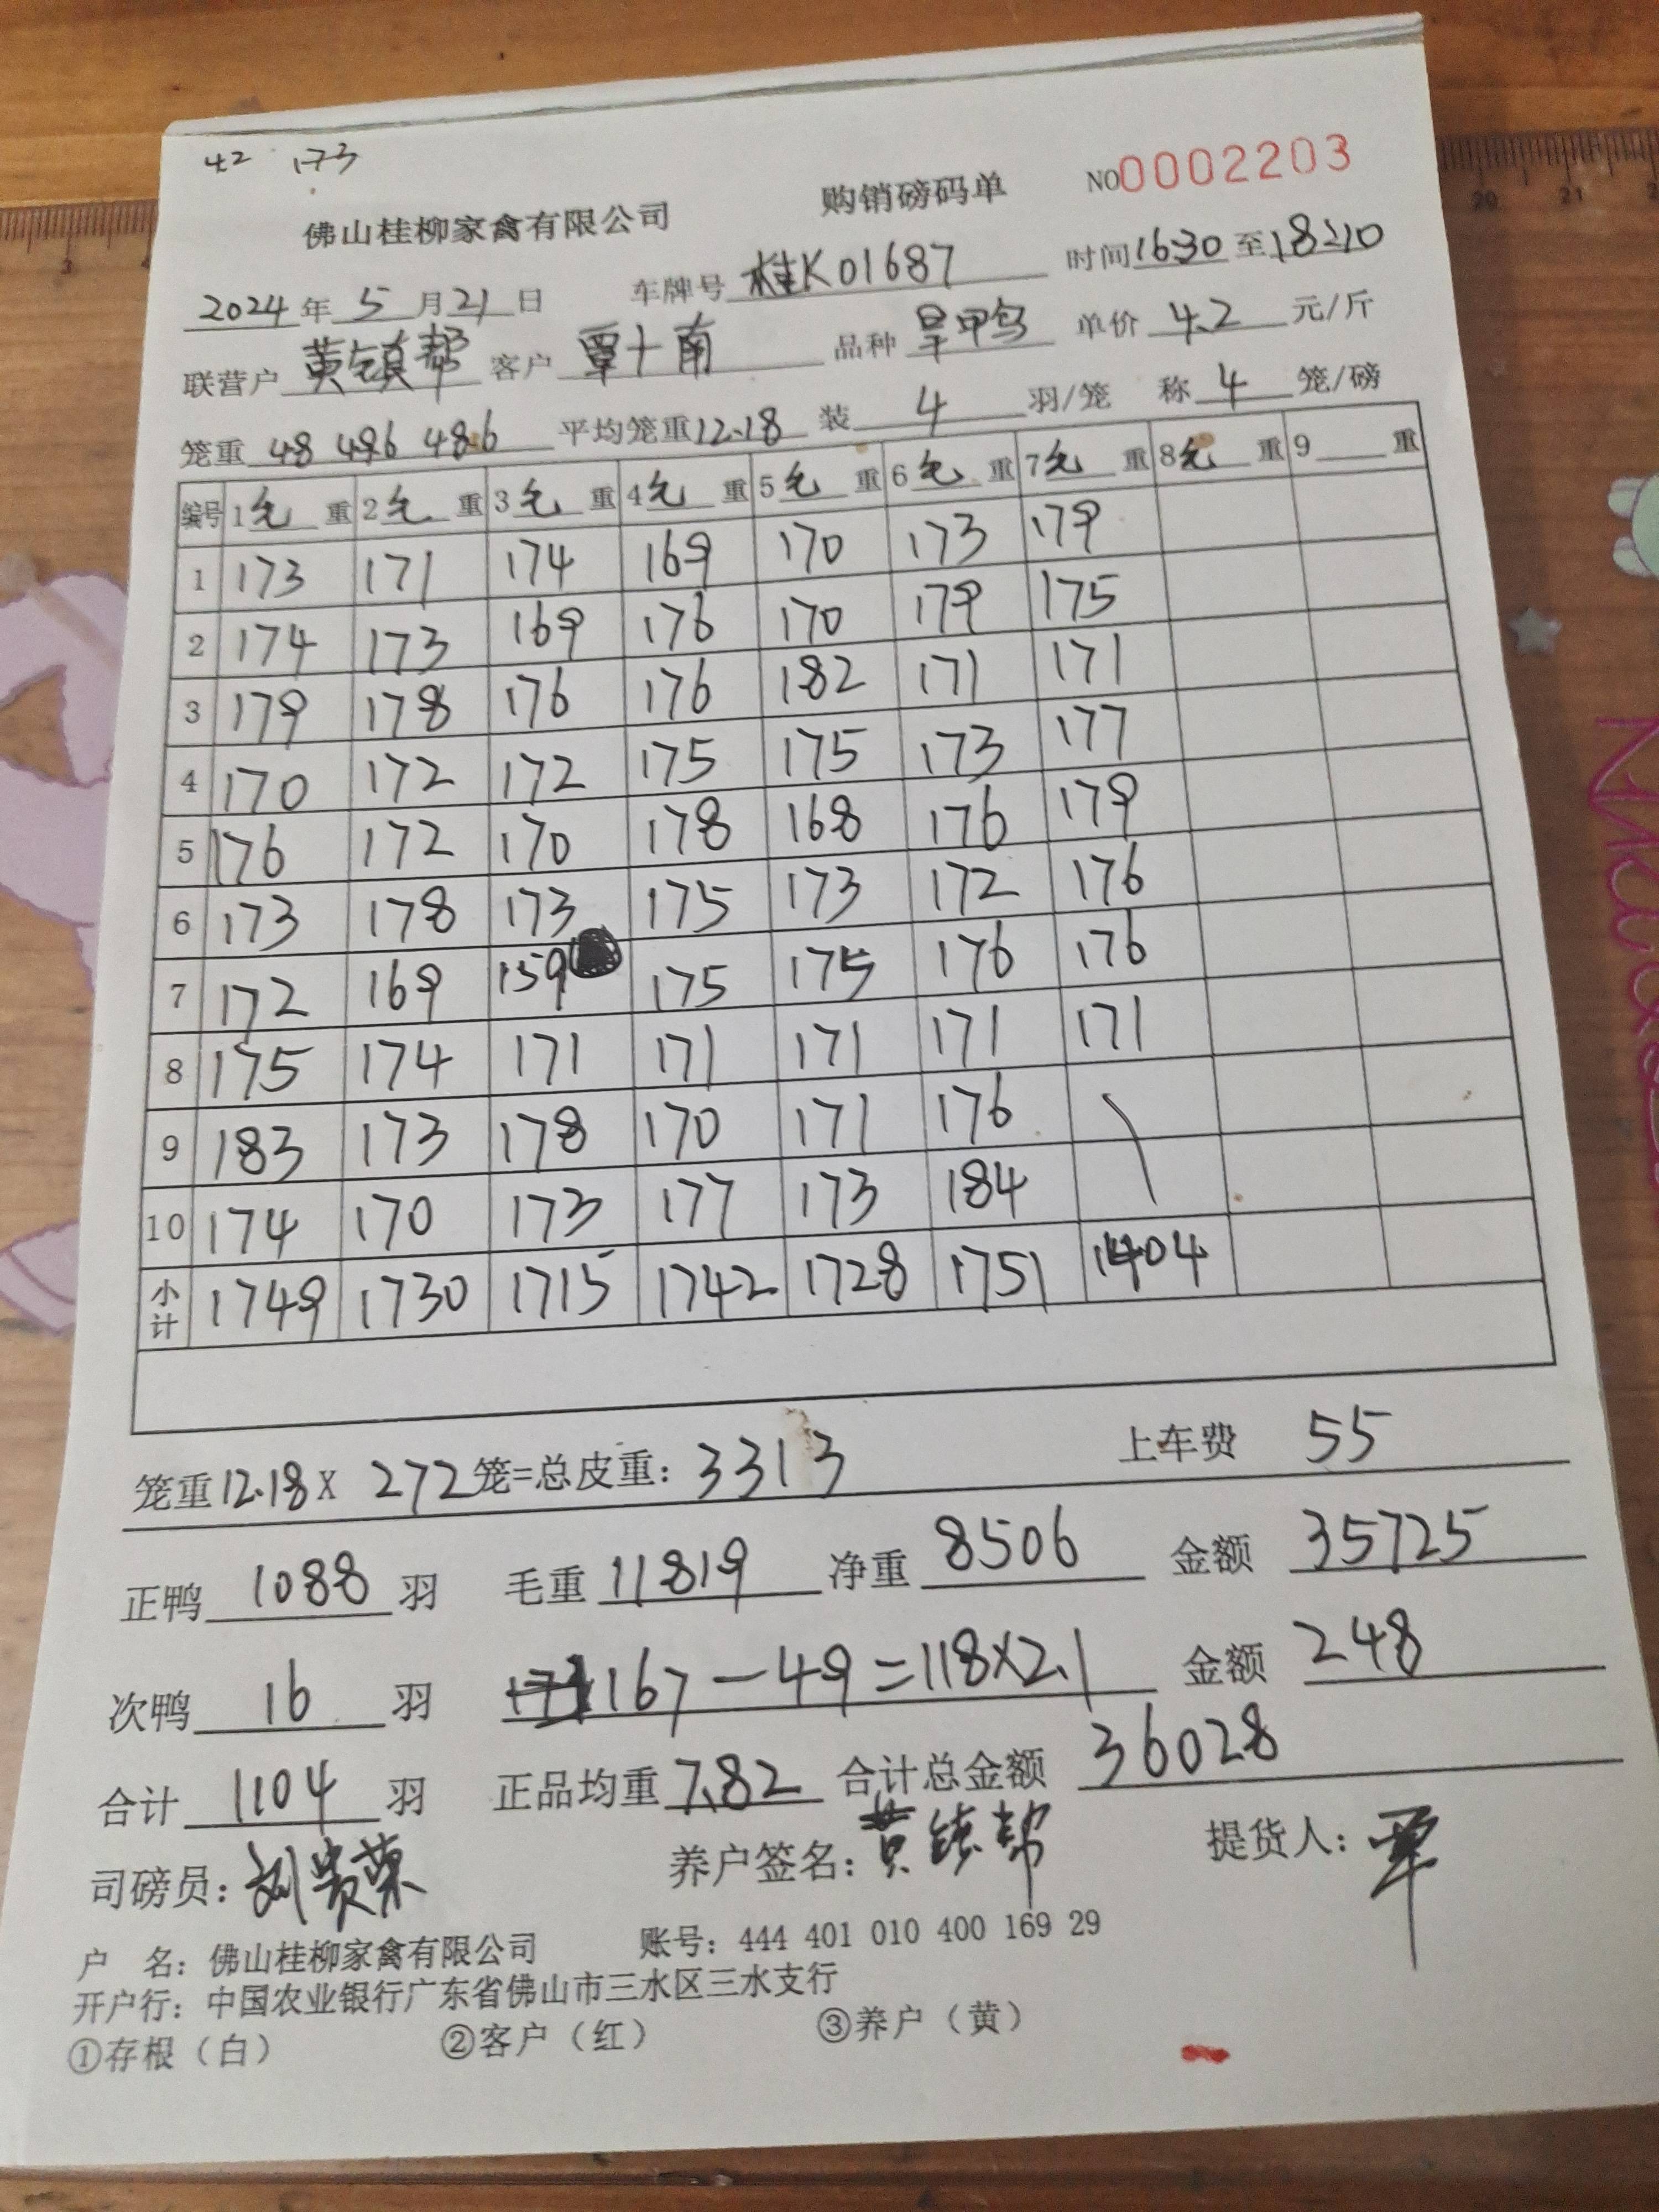 42 173
佛山桂柳家禽有限公司 购销磅码单 NO0002203
2024年5月21日 车牌号 桂K01687 时间16:30至18:10
联营户 黄镇帮 客户 覃十南 品种 旱甲鸟 单价 4.2 元/斤
笼重 48 48.6 48.6 平均笼重12.18 装 4 羽/笼 称 4 笼/磅
编号 1毛重 2毛重 3毛重 4毛重 5毛重 6毛重 7毛重 8毛重 9 重
1 173 171 174 169 170 173 179
2 174 173 169 176 170 179 175
3 179 178 176 176 182 171 171
4 170 172 172 175 175 173 177
5 176 172 170 178 168 176 179
6 173 178 173 175 173 172 176
7 172 169 159 175 175 176 176
8 175 174 171 171 171 171 171
9 183 173 178 170 171 176
10 174 170 173 177 173 184
小计 1749 1730 1715 1742 1728 1751 1404
笼重12.18X 272笼=总皮重：3313 上车费 55
正鸭 1088 羽 毛重 11819 净重 8506 金额 35725
次鸭 16 羽 167-49=118×2.1 金额 248
合计 1104 羽 正品均重 7.82 合计总金额 36028
司磅员：刘贵荣 养户签名：黄镇帮 提货人：覃
户 名：佛山桂柳家禽有限公司 账号：444 401 010 400 169 29
开户行：中国农业银行广东省佛山市三水区三水支行
①存根（白） ②客户（红） ③养户（黄）